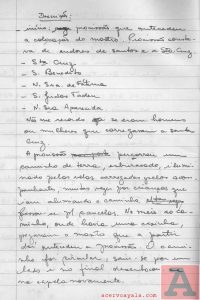 Descrição:
- início: procissão que antecedeu
a colocação do mastro. Procissão consta-
va de andores de santos e a Sta. Cruz
- Sta Cruz
- S. Benedito
- N. Sra. de Fátima
- S. Judas Tadeu
- N. Sra Aparecida
Não me recordo se eram homens
ou mulheres que carregavam a santa
cruz
A procissão percorreu um
caminho de terra, esburacado, e ilumi-
nado pelas velas carregadas pelos acom-
panhantes, muitas vezes por crianças que
iam alumiando o caminho
No meio do ca-
minho, onde havia uma capela,
pegaram o mastro que a partir
daí antecedeu a procissão. O cami-
nho foi circular, saiu-se por um
lado e no final desembocou
na capela novamente.
A
acervoayala.com